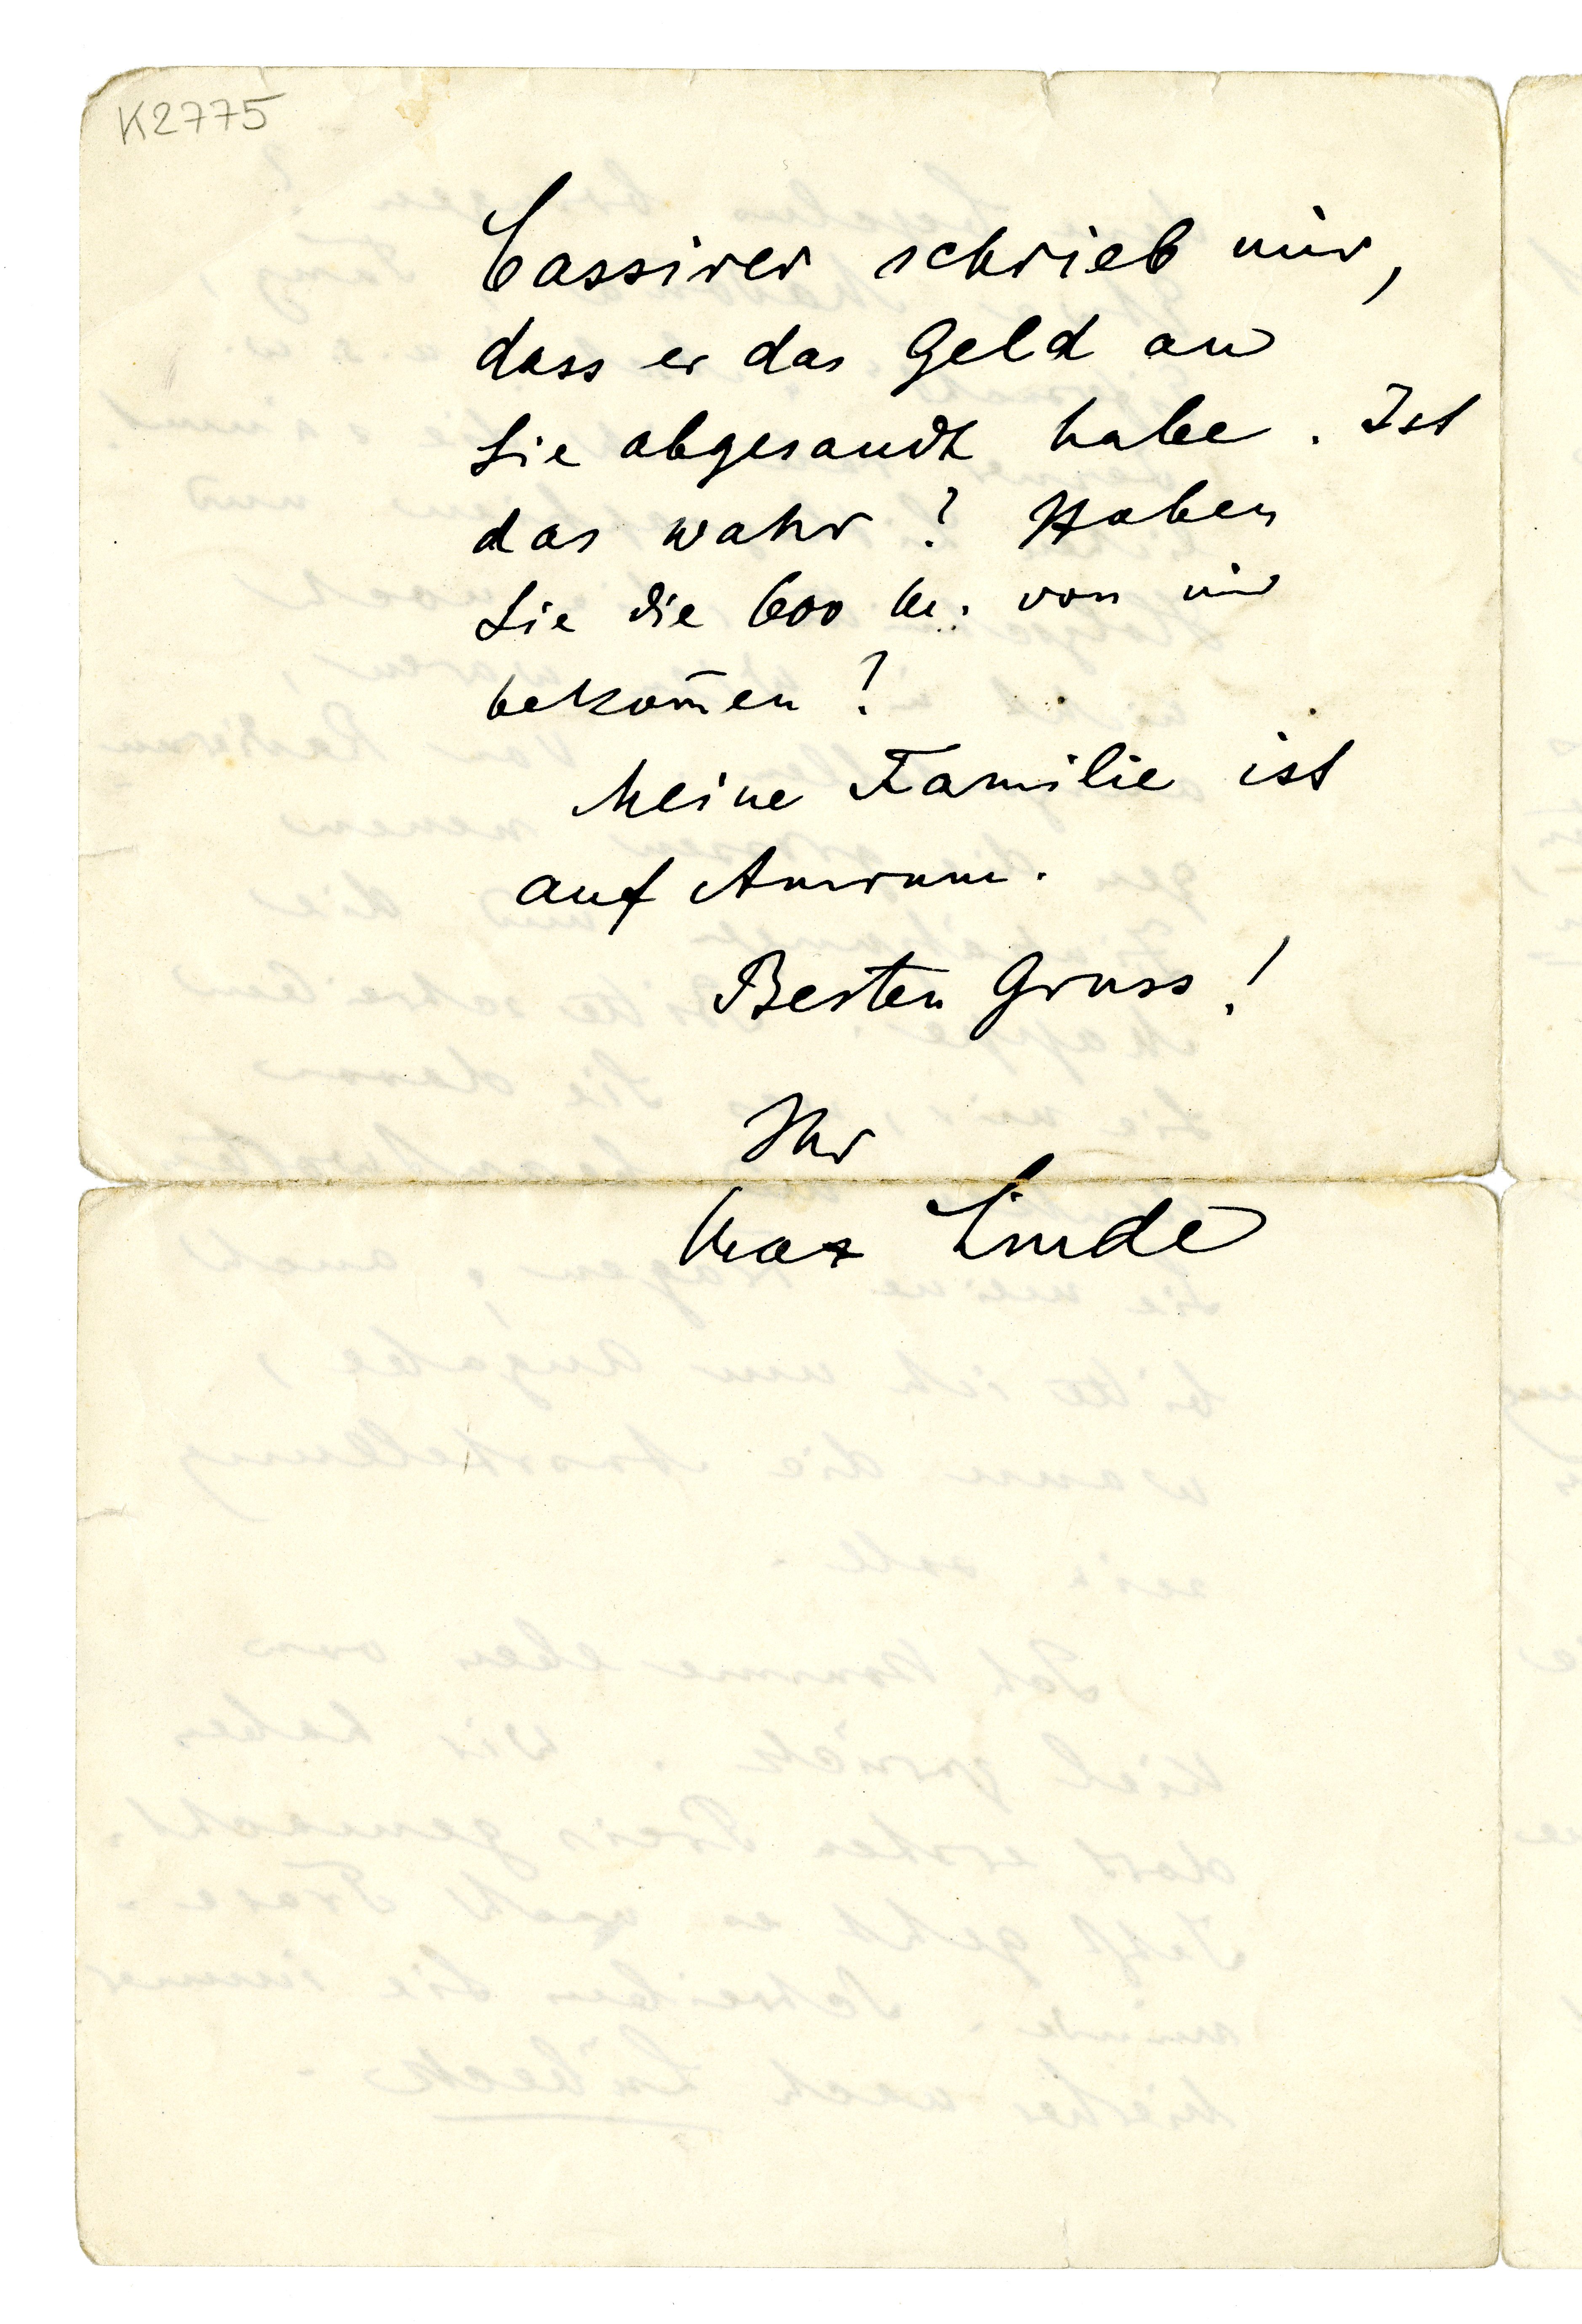 K2775
Cassirer schrieb mir,
dass er das Geld an
Sie abgesandt habe. Ist
das wahr? Haben
Sie die 600 M. von mir
bekom̄en?
Meine Familie ist
auf Amrum.
Besten Gruss!
Ihr
Max Linde